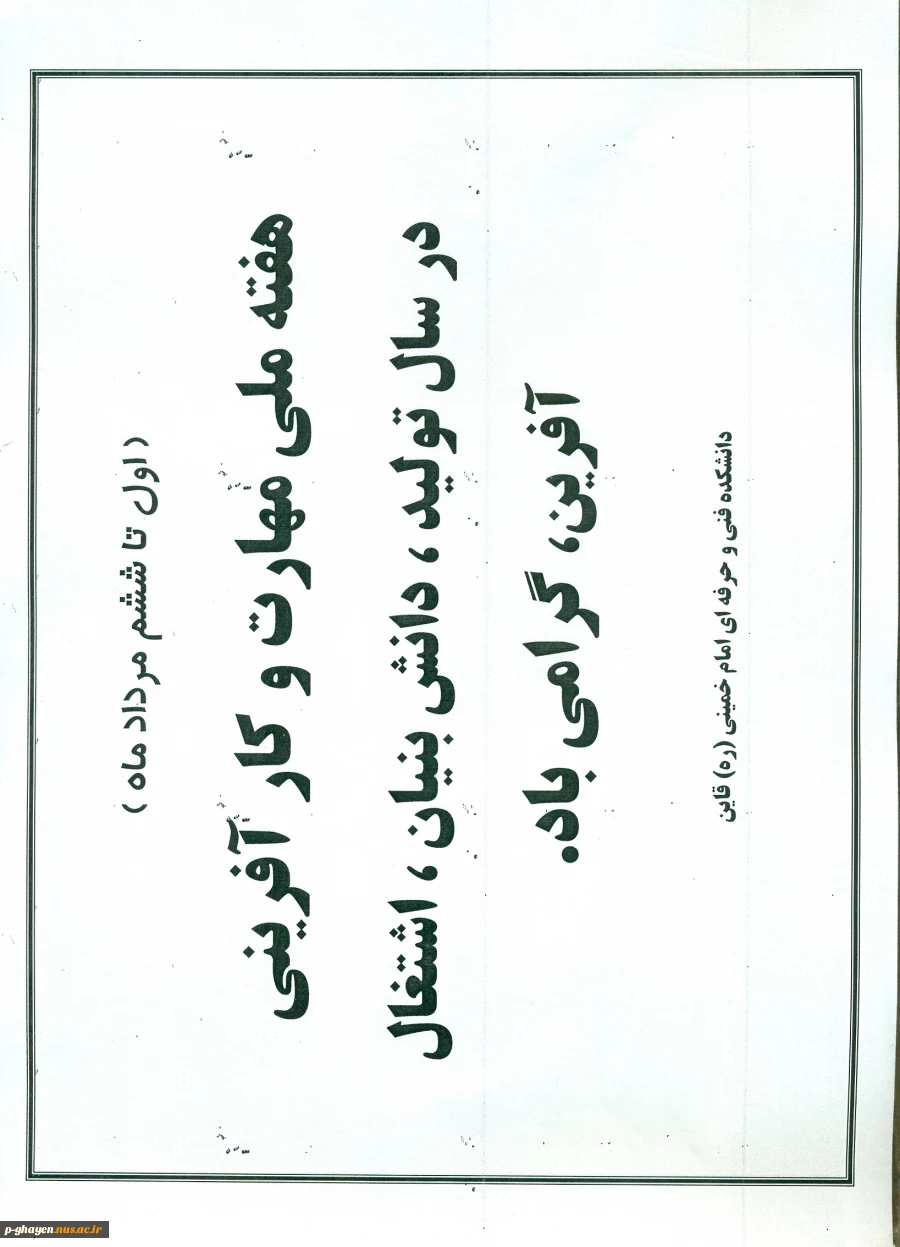 ( اول تا ششم مرداد ماه )
هفته ملی مهارت و کار آفرینی
در سال تولید ، دانش بنیان ، اشتغال
آفرین، گرامی باد.
دانشکده فنی و حرفه ای امام خمینی (ره) قاین
p-ghayen.nus.ac.ir